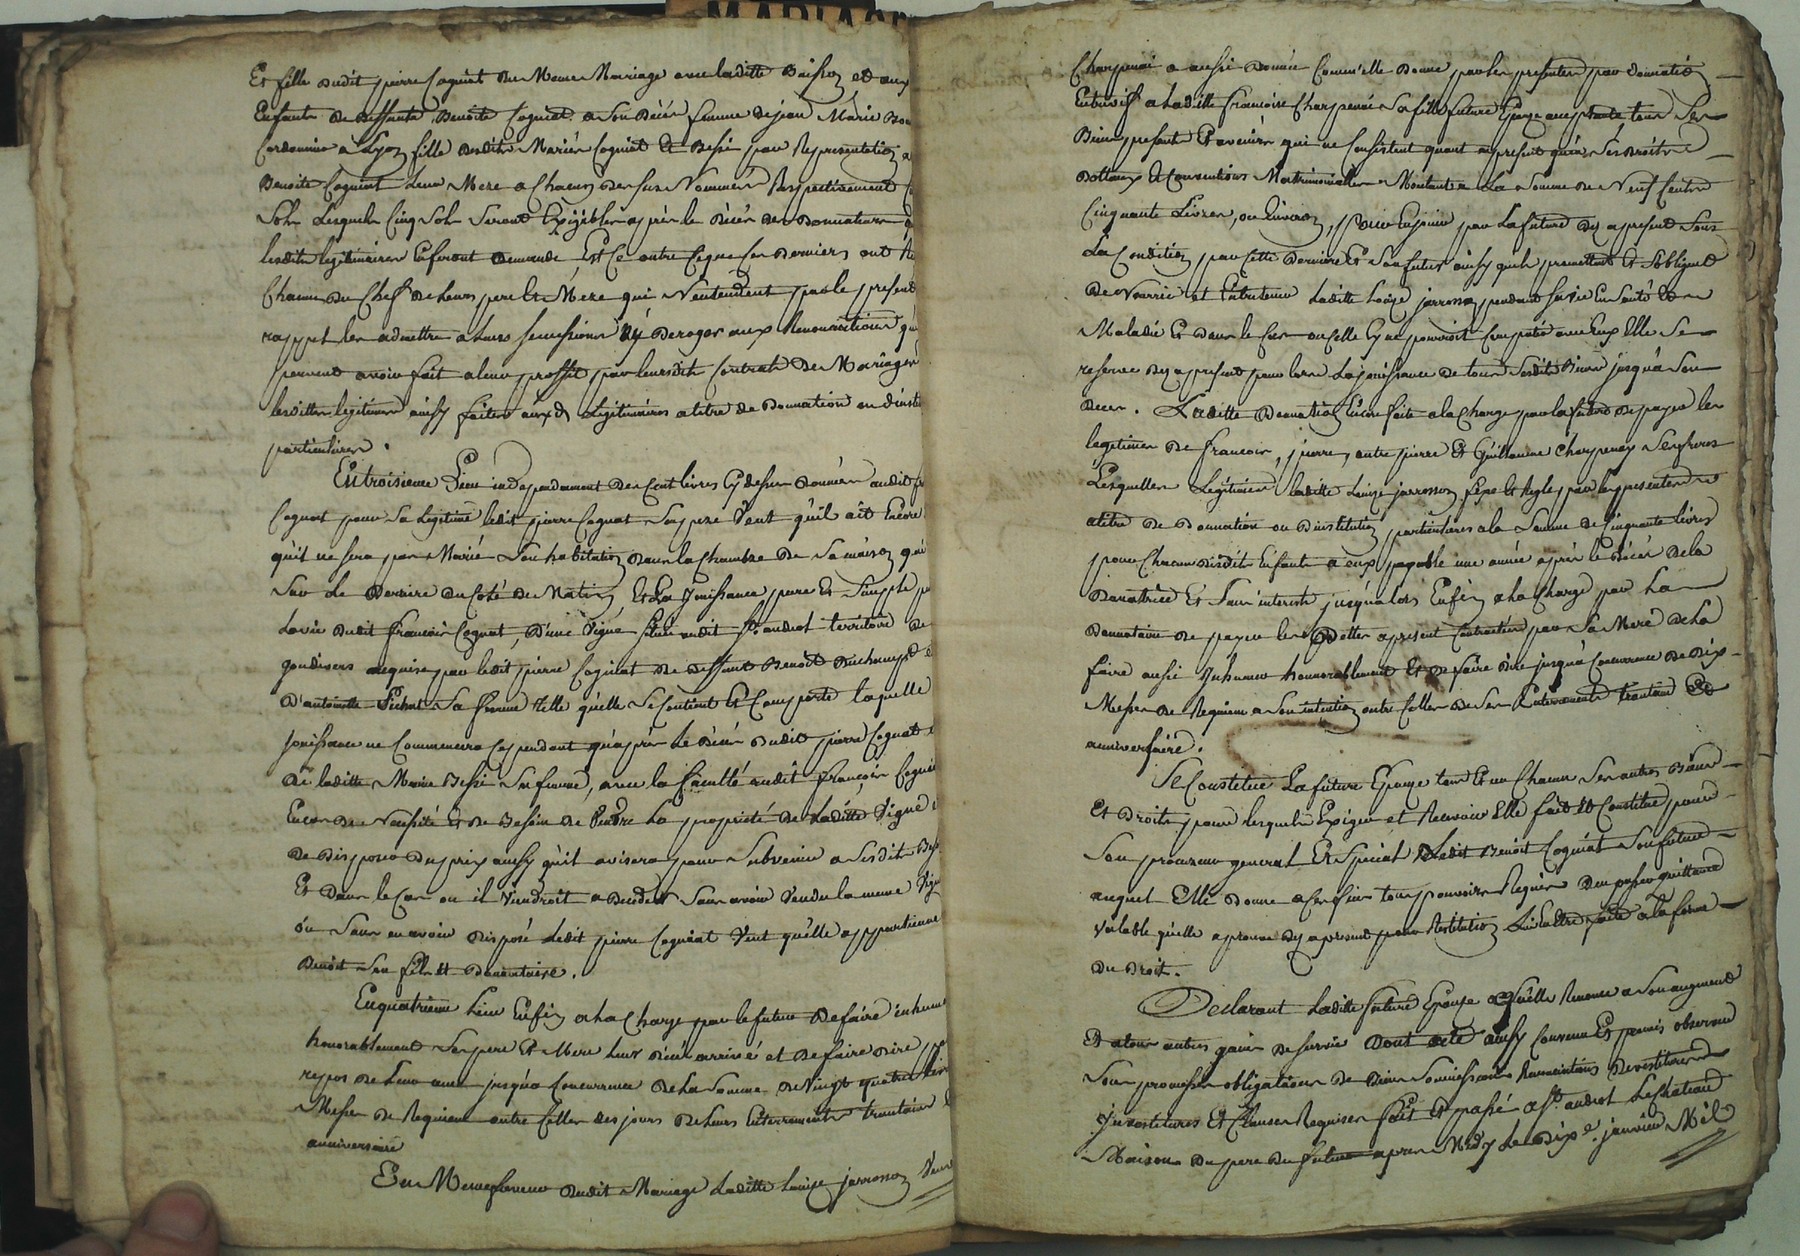 MARIAGE
Et fille dudit pierre Cogniat du Meme Mariage avec laditte Buisson et aux
Enfants de deffunte Benoite Cogniat a Son Décés femme de jean Marie
Cordonnier a Lyon fille desdits Mariés Cogniat et Bessi par Representation
Benoite Cogniat leur Mere a Chacun des sus Nommés Respectivement
Sols Lesquels Cinq Sols Seront Exigibles apres le décés des Donnateurs
lesdits legitimaires En feront demande, Et Ce outre Ceque Ces Derniers ont
Chacun du Chef de leurs pere Et Mere qui N'entendent par le present
rappel les admettre a leurs successions Ny Deroger aux Renonciations
peuvent avoir fait a leur proffit par leursdits Contrats De Mariages
lesdittes legitimes ainsy faites auxd. Legitimaires a titre de Donnation ou d'instit
particulieres.
En troisieme Lieu independamment Des Cent livres Cy dessus Données audit
Cogniat pour Sa Legitime ledit pierre Cogniat Son pere Veut qu'il ait Encore
qu'il ne sera pas Marié Son habitation Dans la Chambre De Sa maison qui
Sur Le Derriere du Coté de Matin Et La Jouissance pure Et Simple
La vie dudit françois Cogniat, D'une Vigne Située audit St. andeol territoire de
acquise par ledit pierre Cogniat de deffunt Benoit Duchamp
D'antoinette Pichat Sa femme telle qu'elle Se Contient Et Comporte laquelle
Jouissance ne Commencera Cependant qu'après Le décés Dudit pierre Cogniat
de laditte Marie Bessi Sa femme, avec la faculté audit françois Cogniat
En cas de Necessité Et de Besoin de Vendre La propriété de Laditte Vigne
de Disposer du prix ainsy qu'il avisera pour Subvenir a Sesdits
Et Dans le Cas ou il Viendroit a Deceder Sans avoir Vendu la meme Vigne
ou Sans en avoir Disposé Ledit pierre Cogniat Veut qu'elle appartienne
Benoit Son fils Et Donnataire.
En quatrieme Lieu Enfin a La Charge par le future De faire inhumer
honorablement Ses pere Et Mere leur décés arrivé et De faire Dire
repos de Leur ame jusqu'a Concurrence de La Somme de Vingt quatre livres
Messes de Requiem outre Celles des jours de Leurs Enterrements trantain
anniversaire
En Meme faveur dudit Mariage Laditte Louise jarrosson Veuve
Charpenai a aussi Donnée Comm'elle Donne par les presentes par donnation
Entrevifs a Laditte francoise Charpenai Sa fille future Epouse acceptante tous Ses
Biens presents Et avenirs qui ne Consistent quant a present qu'a Ses Droits
Dottaux Et Conventions Matrimonialles Montants a La Somme De Neuf Cents
Cinquante Livres, ou Environ, pour En jouir par La future Dés a present Sous
La Condition par Cette Derniere Et Son futur ainsy quils promettent Et S'obligent
De Nourrir et Entretenir Laditte Louise jarrosson pendant Sa vie En Santé Et
Maladie Et dans le Cas ou Elle Ne pourroit Compatir avec Eux Elle Se
reserve Dés a present pour Lors La jouissance de tous Sesdits Biens jusqu'a Son
décés. Laditte Donnation Encor faite a la Charge par la future de payer les
legitimes de francois, pierre, autre pierre Et Guillaume Charpenay Ses freres
Lesquelles Legitimes laditte Louise jarrosson fixe Et Regle par les presentes
a titre De Donnation ou D'institution particulieres a la Somme de Cinquante livres
pour Chacun Desdits Enfants a Eux payable une année après le décés De la
Donatrice Et Sans interets jusqu'alors Enfin a La Charge par La
Donnataire de payer les Dettes a present Contractées par Sa Mere De La
faire aussi Inhumer honorablement Et De faire dire jusqu'a Concurrence de Dix
Messes de Requiem a Son intention outre Celles de Ses Enterrements trantain Et
anniversaire.
Se Constitue La future Epouse tous Et un Chacun Ses autres Biens
Et Droits pour lesquels Exiger et Recevoir Elle fait Et Constitue pour
Son procureur general Et Special Ledit Benoit Cogniat Son future
auquel Elle Donne a Ces fins tous pouvoirs Requis D'en passer quittance
Valable qu'elle approuve Dés apresent pour Restitution Lui Estre faite a la forme
Du Droit.
Declarant Laditte future Epouse Qu'elle Renonce a Son augment
Et a tous autres gains de Survie Dont acte ainsy Convenu Et promis observer
Sous promesses obligations de Biens Soumissions Renonciations Devestitures
Jnvestitures Et Clauses Requises fait Et passé a St. andeol Le Chateau
Maison du pere du future apres Midy Le Dixe. janvier Mil